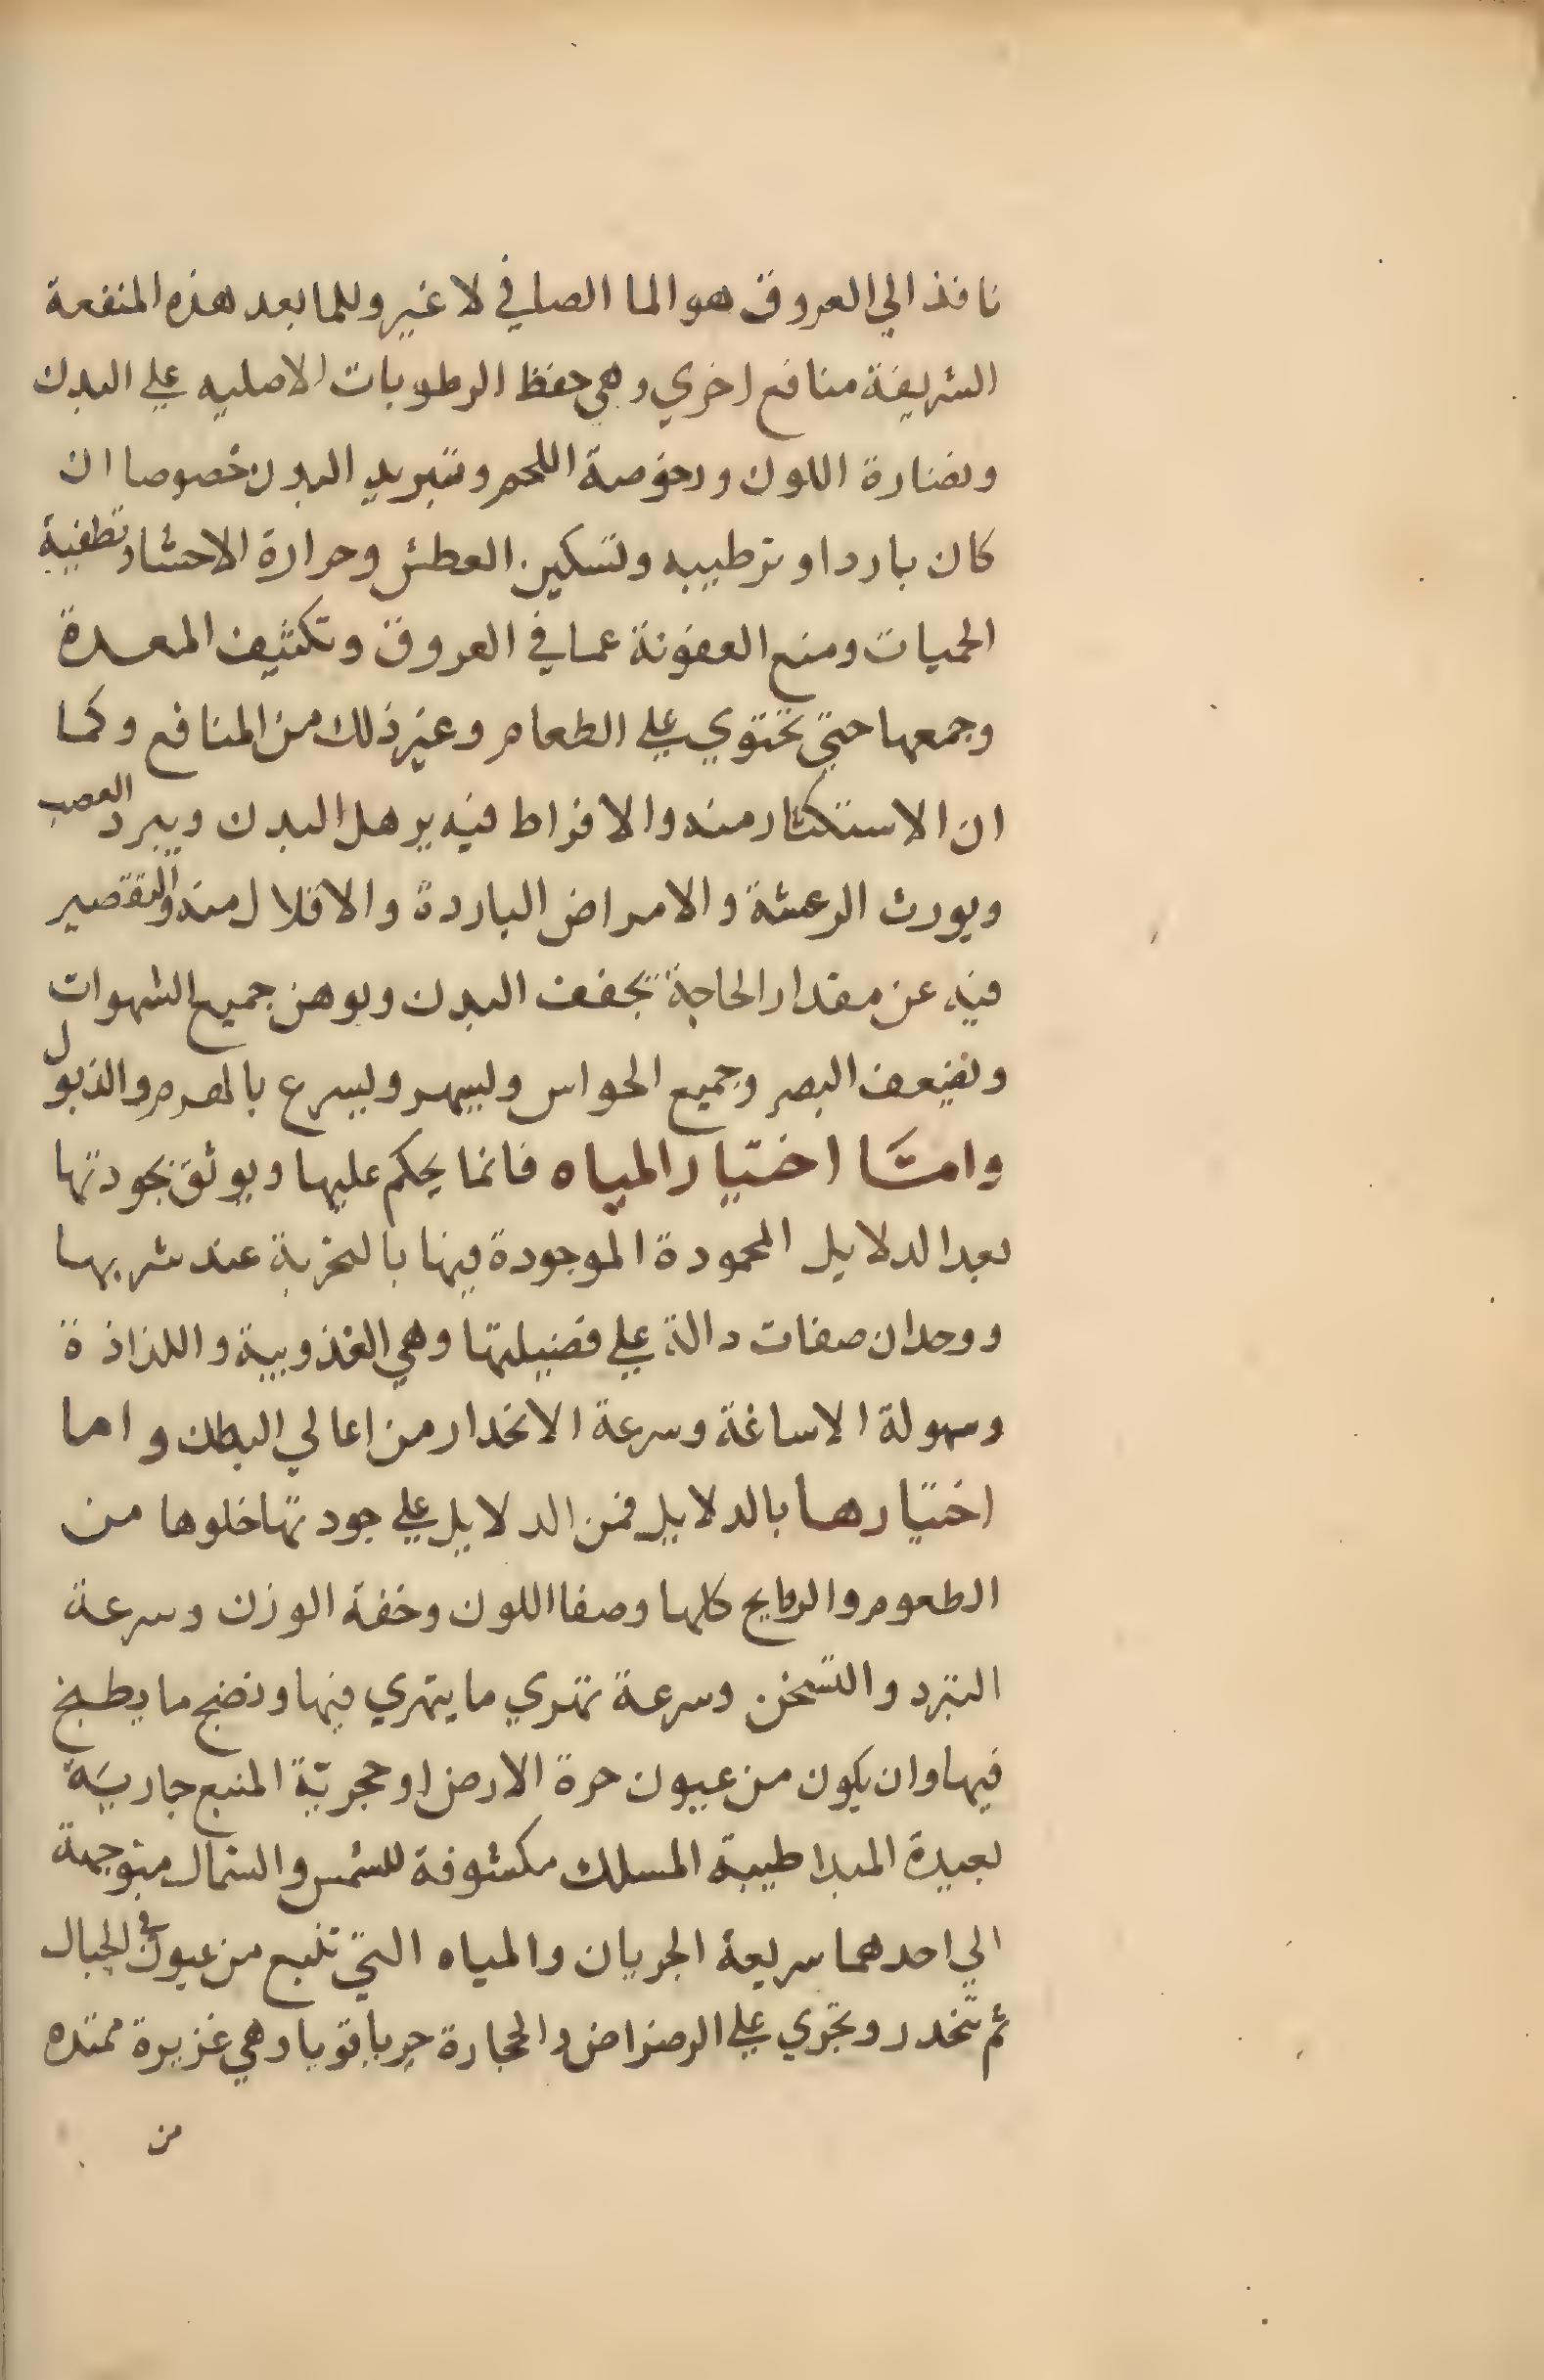 نافذ الي العروق هو الما الصافي لا غير وللما بعد هذه المنفعة
الشريفة منافع اخري وهي حفظ الرطوبات الاصليه علي البدن
ونضارة اللون ورخوصة اللحم وتبريد البدن خصوصا ان
كان باردا وترطيبه وتسكين العطش وحرارة الاحشا وتطفية
الحميات ومنع العفونة عما في العروق وتكثيف المعدة
وجمعها حتي تحتوي علي الطعام وغير ذلك من المنافع وكما
ان الاستكثار منه والافراط فيه يرهل البدن ويبرد العصب
ويورث الرعشة والامراض الباردة والاقلال منه والتقصير
فيه عن مقدار الحاجة تجفف البدن ويوهن جميع الشهوات
وتضعف البصر وجميع الحواس ويسهر ويسرع بالهرم والذبول
وامّا اختيار المياه فانما يحكم عليها ويوثق بجودتها
بعد الدلايل المحمودة الموجودة فيها بالتجربة عند شربها
ووجدان صفات دالة علي فضيلتها وهي العذوبية واللذاذة
وسهولة الاساغة وسرعة الانحدار من اعالي البطن واما
اختيارها بالدلايل فمن الدلايل علي جودتها خلوها من
الطعوم والروايح كلها وصفا اللون وخفة الوزن وسرعة
التبرد والتسخن وسرعة تهري ما يتهري فيها ونضج ما يطبخ
فيها وان يكون من عيون حرة الارض او حجريّة المنبع جاريَة
بعيدة المبدا طيبة المسلك مكشوفة للشمس والشمال متوجهة
الي احدهما سريعة الجريان والمياه التي تنبع من عيون في الجبال
ثم تنحدر وتجري علي الرضراض والحجارة جريا قويا وهي غزيرة ممتده
من